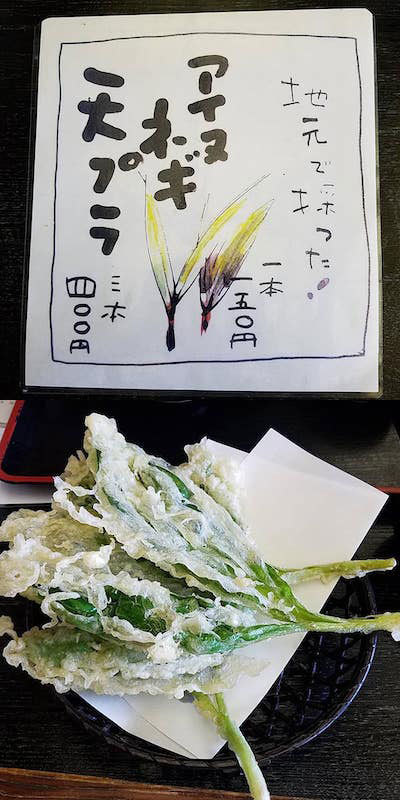 地元で採った!
アイヌ
ネギ
天プラ
一本
一五〇円
三本
四〇〇円